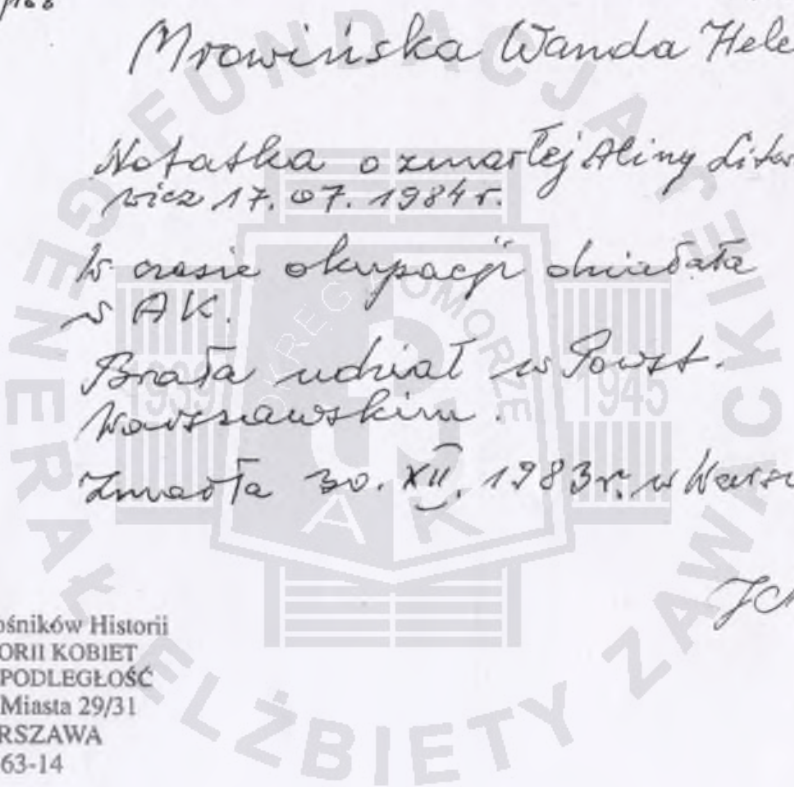 Mrowińska Wanda Hele
Notatka o zmarłej Aliny
wicz 17. 07. 1984 r.
W czasie okupacji działała
w AK.
Brała udział w Powst.
Warszawskim.
Zmarła 30. XII. 1983 r. w Warsz
ośników Historii
ORII KOBIET
PODLEGŁOŚĆ
Miasta 29/31
RSZAWA
63-14
FUNDACJA
GENERAŁ ELŻBIETY ZAWACKIEJ
OKRĘG POMORZE
1939
1945
AK